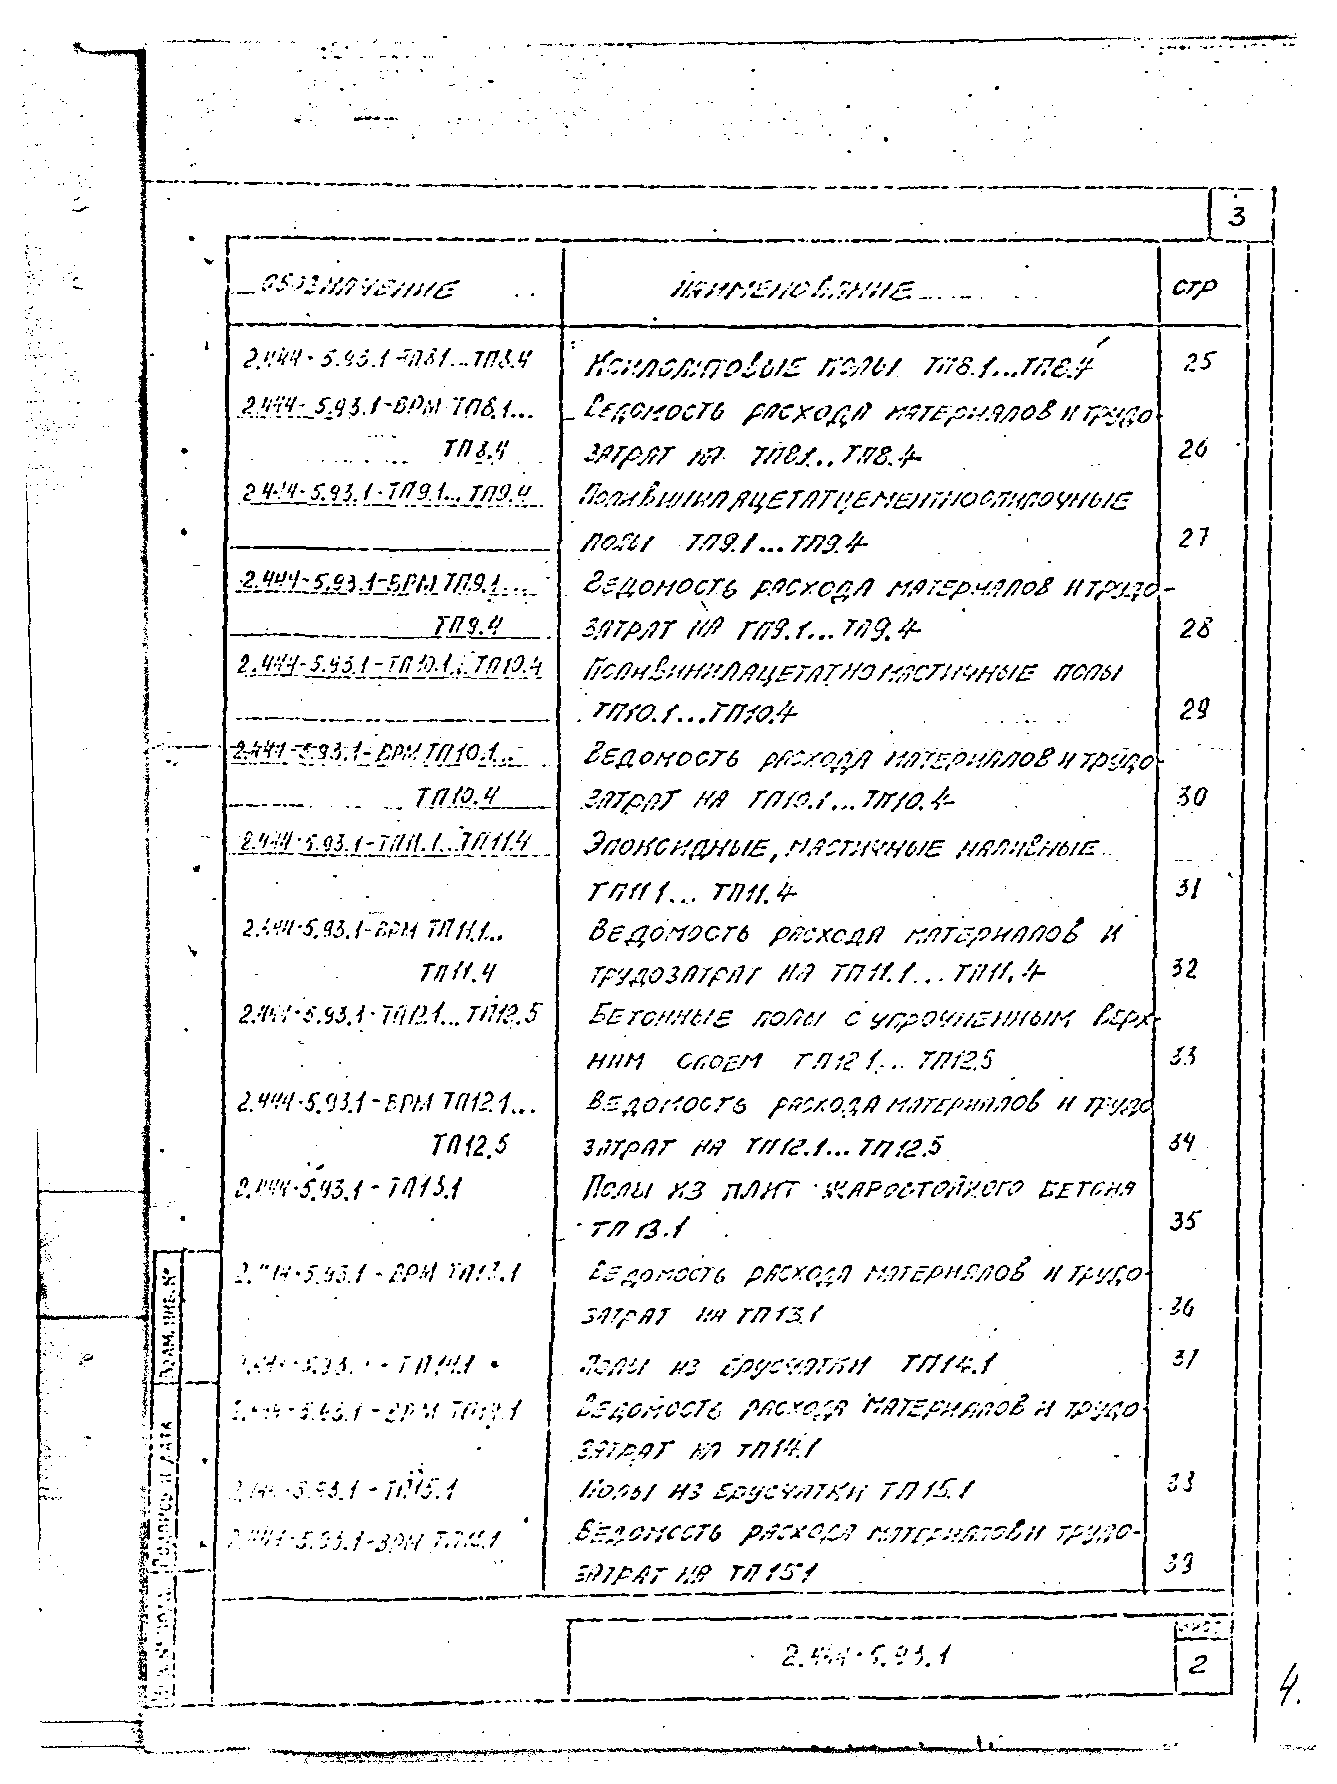 3
ОБОЗНАЧЕНИЕ НАИМЕНОВАНИЕ СТР
2.444-5.93.1-ТП8.1...ТП8.4 Ксилолитовые полы ТП8.1...ТП8.4 25
2.444-5.93.1-ВРМ ТП8.1... Ведомость расхода материалов и трудо-
ТП8.4 затрат на ТП8.1...ТП8.4 26
2.444-5.93.1-ТП9.1...ТП9.4 Поливинилацетатцементноопилочные
полы ТП9.1...ТП9.4 27
2.444-5.93.1-ВРМ ТП9.1... Ведомость расхода материалов и трудо-
ТП9.4 затрат на ТП9.1...ТП9.4 28
2.444-5.93.1-ТП10.1...ТП10.4 Поливинилацетатномастичные полы
ТП10.1...ТП10.4 29
2.444-5.93.1-ВРМ ТП10.1... Ведомость расхода материалов и трудо-
ТП10.4 затрат на ТП10.1...ТП10.4 30
2.444-5.93.1-ТП11.1...ТП11.4 Эпоксидные, мастичные наливные
ТП11.1... ТП11.4 31
2.444-5.93.1-ВРМ ТП11.1... Ведомость расхода материалов и
ТП11.4 трудозатрат на ТП11.1...ТП11.4 32
2.444-5.93.1-ТП12.1...ТП12.5 Бетонные полы с упрочненным верх-
ним слоем ТП12.1...ТП12.5 33
2.444-5.93.1-ВРМ ТП12.1... Ведомость расхода материалов и трудо
ТП12.5 затрат на ТП12.1...ТП12.5 34
2.444-5.93.1-ТП13.1 Полы из плит жаростойкого бетона
ТП13.1 35
2.444-5.93.1-ВРМ ТП13.1 Ведомость расхода материалов и трудо-
затрат на ТП13.1 36
2.444-5.93.1-ТП14.1 Полы из брусчатки ТП14.1 37
2.444-5.93.1-ВРМ ТП14.1 Ведомость расхода материалов и трудо-
затрат на ТП14.1
2.444-5.93.1-ТП15.1 Полы из брусчатки ТП15.1 38
2.444-5.93.1-ВРМ Ведомость расхода материалов и трудо-
затрат на ТП15.1 39
ВЗАМ. ИНВ. №
ПОДПИСЬ И ДАТА
2.444-5.93.1
ЛИСТ
2
4.